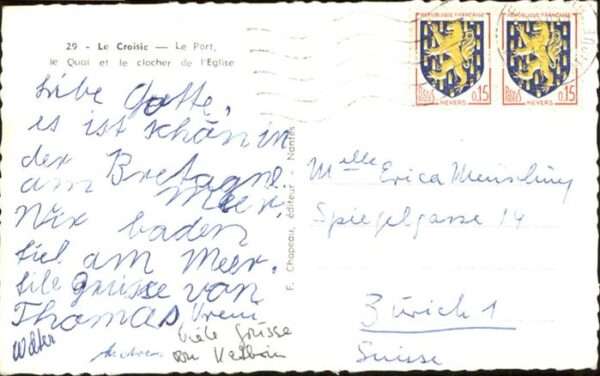 29 - Le Croisic — Le Port,
le Quai et le clocher de l'Eglise
Libe Gotte,
es ist schön in
der Bretagne
am Meer.
Wir baden
fiel am Meer.
file grüsse von
Thomas, Vreni
Walter
Viele Grüsse
von
F. Chapeau, éditeur - Nantes
REPUBLIQUE FRANÇAISE
POSTES 0,15
NEVERS
REPUBLIQUE FRANÇAISE
POSTES 0,15
NEVERS
Melle Erica
Spiegelgasse 14
Zürich 1
Suisse